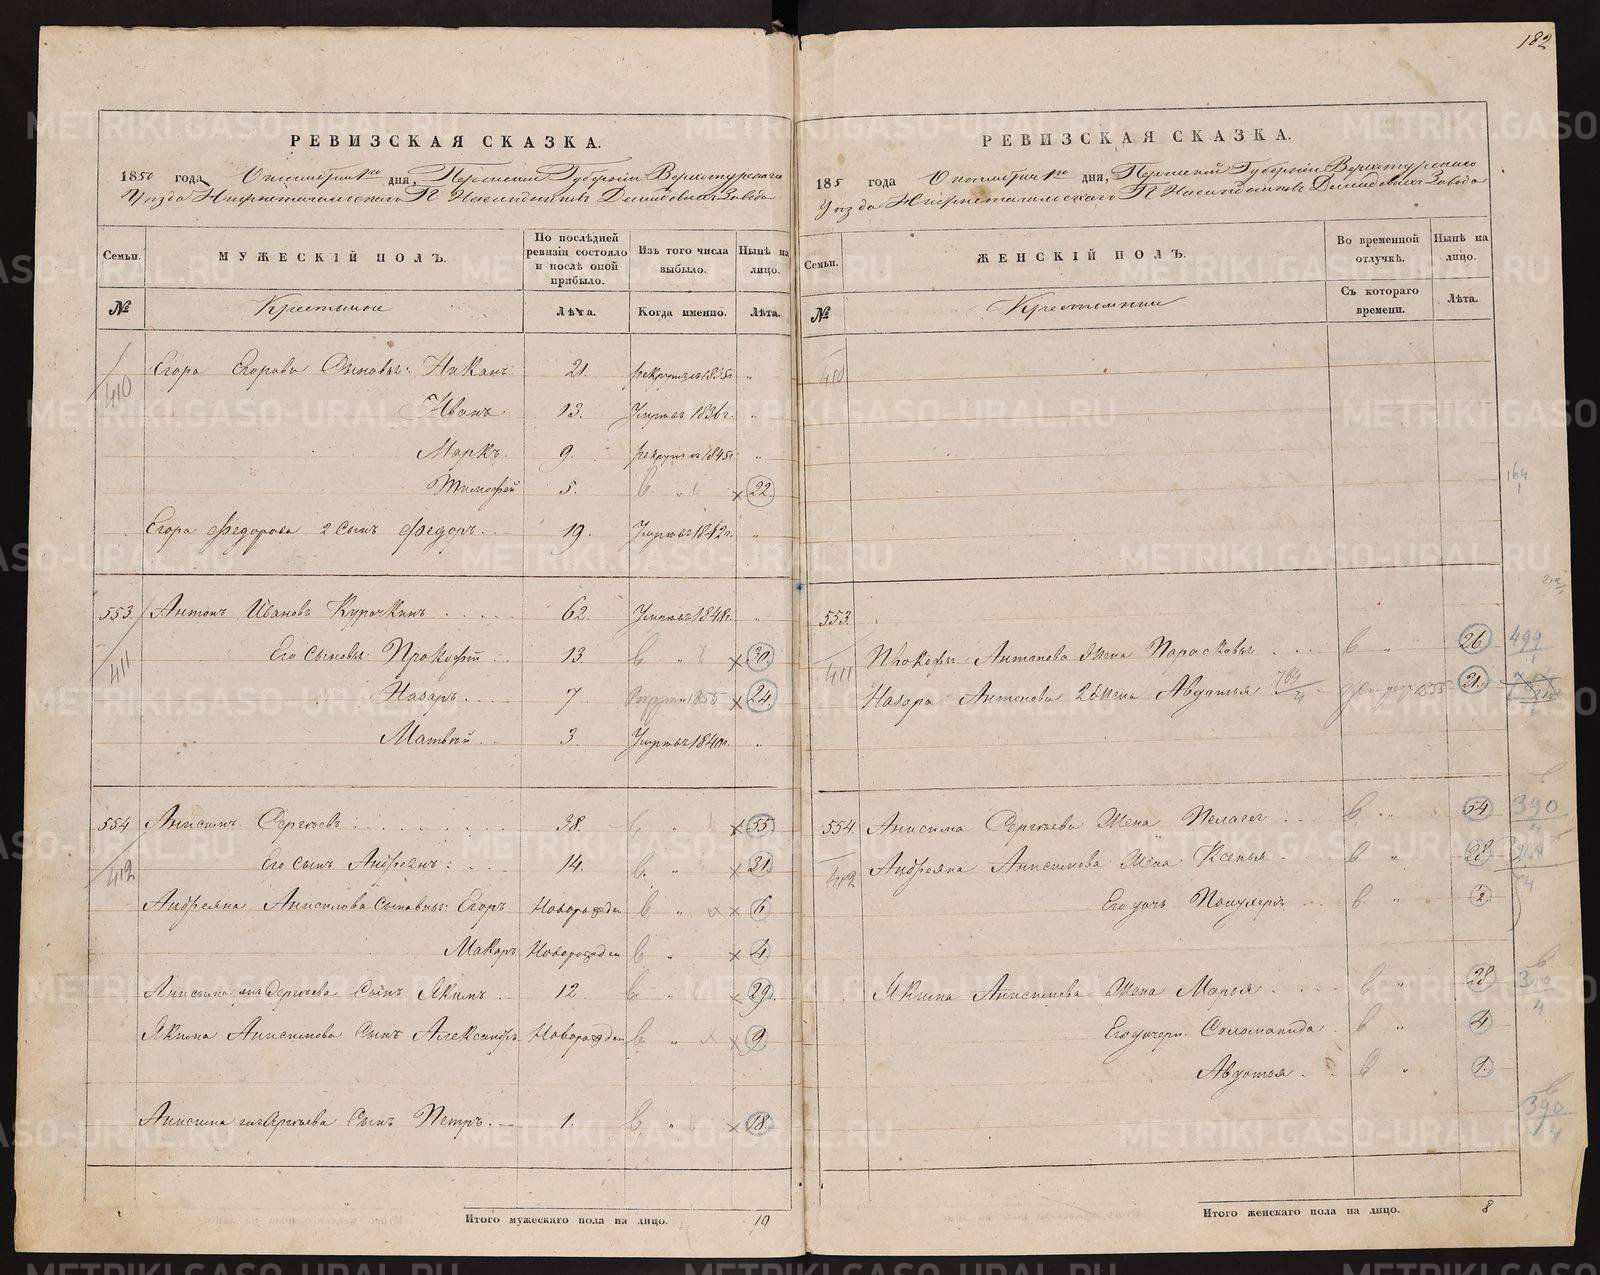 182
РЕВИЗСКАЯ СКАЗКА.
1850 года Октября 1го дня, Пермской Губернiи Верхотурскаго
Уѣзда Нижнетагильскаго П Наслѣдниковъ Демидовыхъ Завода
Семьи.
МУЖЕСКIЙ ПОЛЪ.
По послѣдней ревизiи состояло и послѣ оной прибыло.
Изъ того числа выбыло.
Нынѣ на лицо.
№
Крестьяне
Лѣта.
Когда именно.
Лѣта.
410
Егора Егорова Сыновья: 21. рекрутъ 1835г „
Иванъ 13. Умръ въ 1836г. „
Маркъ. 9. рекрутъ въ 1845г „
Тимофей 5. в „ 22.
Егора Федорова 2 Сынъ Федоръ 19. Умръ въ 1842г. „
553. Антонъ Ивановъ Курочкинъ 62. Умръ въ 1848г. „
411
Его Сыновья: Прокофiй 13. в „ 30.
Назаръ 7 1855 24.
Матвѣй 3. Умръ въ 1840г. „
554 Анисимъ Сергѣевъ 38. в „ 55
412
Его Сынъ Андреянъ: 14. в. „ 31.
Андреяна Анисимова Сыновья: Егоръ Новорожден в „ 6
Макаръ Новорожден в „ 4
Анисима Сергѣева Сынъ Якимъ 12 в. „ 29.
Якима Анисимова Сынъ Александръ Новорожден в. „ 9
Анисима Сергѣева Сынъ Петръ. 1. в „ 18.
Итого мужескаго пола на лицо. 10
РЕВИЗСКАЯ СКАЗКА.
185 года Октября 1го дня, Пермской Губернiи Верхотурскаго
Уѣзда Нижнетагильскаго П Наслѣдниковъ Демидовыхъ Завода
Семьи.
ЖЕНСКIЙ ПОЛЪ.
Во временной отлучкѣ.
Нынѣ на лицо.
№
Крестьянки
Съ котораго времени.
Лѣта.
410
164
553.
411
Прокофья Антонова Жена Парасковья в „ 26 499
Назара Антонова Жена Авдотья 1855 21.
554. Анисима Сергѣева Жена Пелагея в „ 54 390
412
Андреяна Анисимова Жена Ксенья в „ 28
Его дочь в „ 2
Якима Анисимова Жена Марья в „ 28 390
4
Его дочери Соломанида в „ 4
Авдотья в „ 1.
390
4
Итого женскаго пола на лицо. 8
METRIKI.GASO-URAL.RU